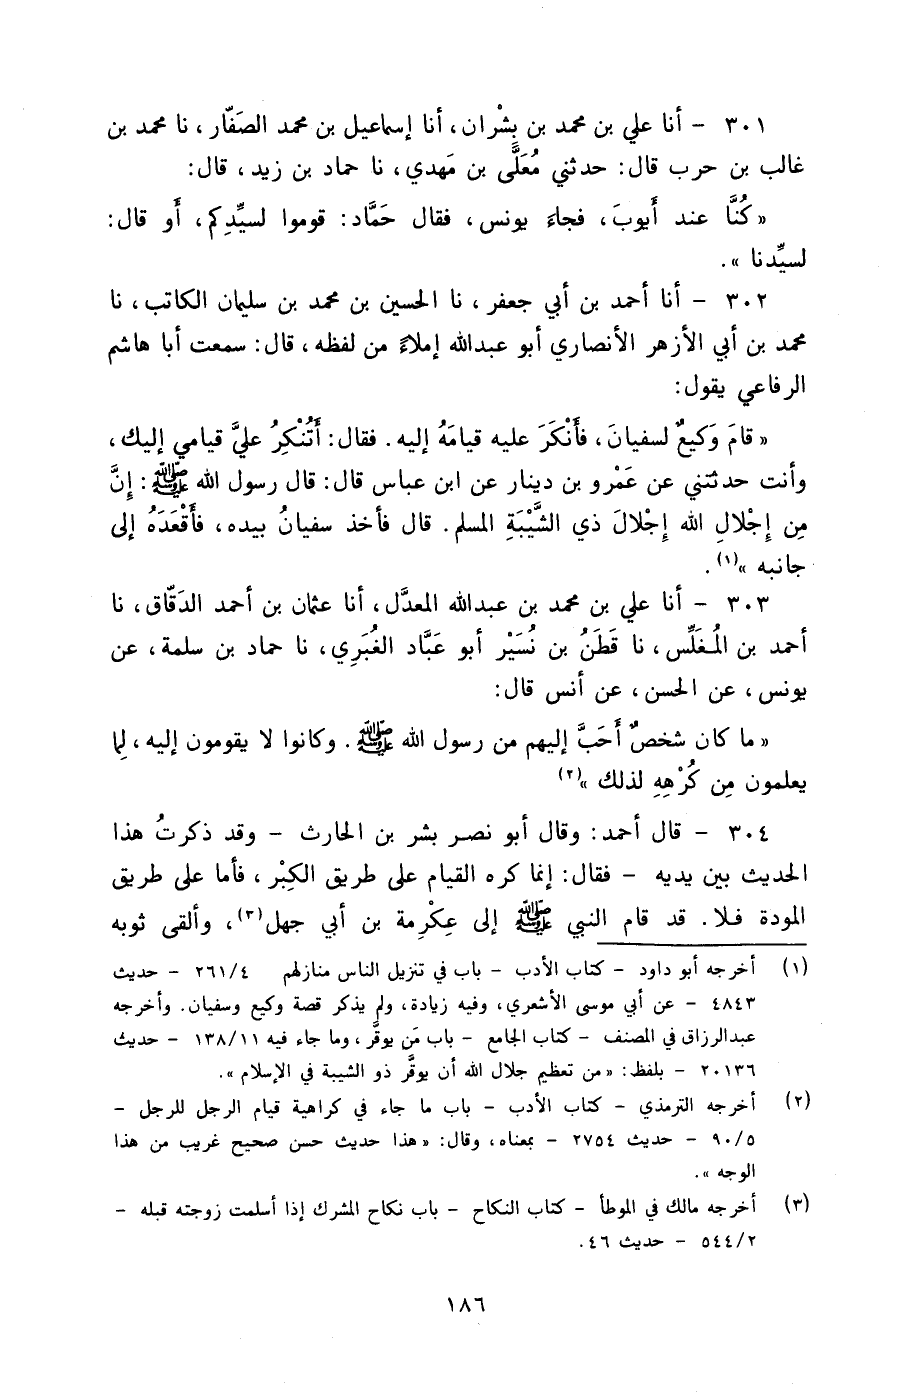 ٣٠١ - أنا علي بن محمد بن بِشْران، أنا إسماعيل بن محمد الصَفّار، نا محمد بن
غالب بن حرب قال: حدثني مُعَلَّى بن مَهدي، نا حماد بن زيد، قال:
« كُنَّا عند أَيوبَ، فجاءَ يونس، فقال حَمَّاد: قوموا لسيِّدِكم، أَو قال:
لسيِّدنا ».
٣٠٢ - أنا أحمد بن أبي جعفر، نا الحسين بن محمد بن سليمان الكاتب، نا
محمد بن أبي الأزهر الأنصاري أبو عبدالله إملاءً من لفظه، قال: سمعت أبا هاشم
الرفاعي يقول:
« قامَ وَكيعٌ لسفيانَ، فأَنْكَرَ عليه قيامَهُ إليه. فقال: أَتُنْكِرُ عليَّ قيامي إليك،
وأنت حدثتني عن عَمْرو بن دينار عن ابن عباس قال: قال رسول الله ﷺ: إِنَّ
مِن إِجْلالِ الله إِجْلالَ ذي الشَّيْبَةِ المسلم. قال فأخذ سفيانُ بيده، فأَقْعَدَهُ إلى
جانبه »(١).
٣٠٣ - أنا علي بن محمد بن عبدالله المعدَّل، أنا عثمان بن أحمد الدَقّاق، نا
أحمد بن المُغَلِّس، نا قَطَنُ بن نُسَيْر أبو عَبَّاد الغُبَرِي، نا حماد بن سلمة، عن
يونس، عن الحسن، عن أنس قال:
« ما كان شخصٌ أَحَبَّ إليهم من رسول الله ﷺ. وكانوا لا يقومون إليه، لِما
يعلمون مِن كُرْهِهِ لذلك »(٢)
٣٠٤ - قال أحمد: وقال أبو نصر بشر بن الحارث - وقد ذكرتُ هذا
الحديث بين يديه - فقال: إنما كره القيام على طريق الكِبْر، فأما على طريق
المودة فلا. قد قام النبي ﷺ إلى عِكْرِمة بن أبي جهل(٣)، وألقى ثوبه
(١) أخرجه أبو داود - كتاب الأدب - باب في تنزيل الناس منازلهم ٢٦١/٤ - حديث
٤٨٤٣ - عن أبي موسى الأشعري، وفيه زيادة، ولم يذكر قصة وكيع وسفيان. وأخرجه
عبدالرزاق في المصنف - كتاب الجامع - باب مَن يوقَّر، وما جاء فيه ١٣٨/١١ - حديث
٢٠١٣٦ - بلفظ: « من تعظيم جلال الله أن يوقَّر ذو الشيبة في الإسلام ».
(٢) أخرجه الترمذي - كتاب الأدب - باب ما جاء في كراهية قيام الرجل للرجل -
٩٠/٥ - حديث ٢٧٥٤ - بمعناه، وقال: « هذا حديث حسن صحيح غريب من هذا
الوجه ».
(٣) أخرجه مالك في الموطأ - كتاب النكاح - باب نكاح المشرك إذا أسلمت زوجته قبله -
٥٤٤/٢ - حديث ٤٦.
١٨٦